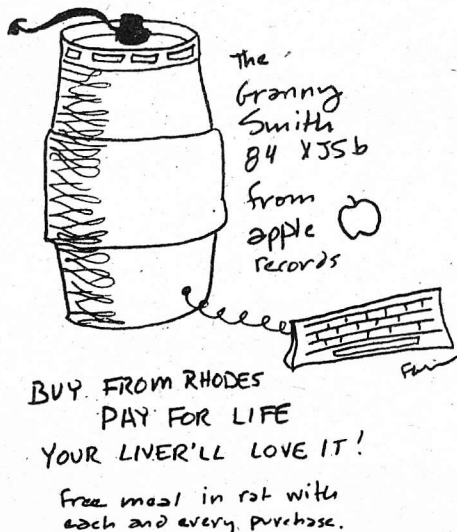 The
Granny
Smith
84 XJ5b
from
apple
records
BUY FROM RHODES
PAY FOR LIFE
YOUR LIVER'LL LOVE IT!
Free meal in rat with
each and every purchase.